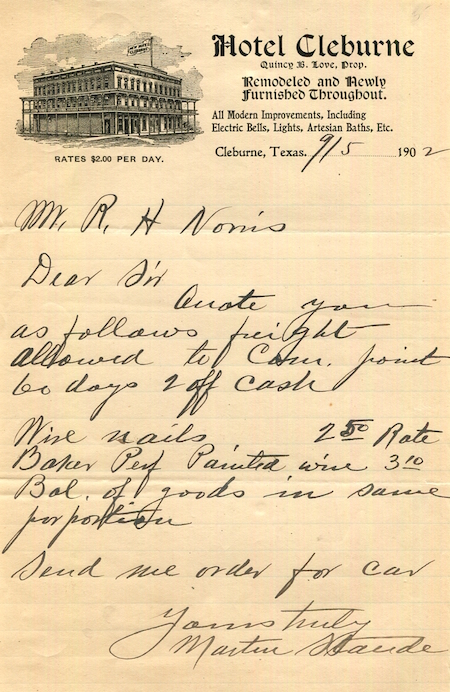 Hotel Cleburne
Quincy B. Love, Prop.
Remodeled and Newly
Furnished Throughout.
All Modern Improvements, Including
Electric Bells, Lights, Artesian Baths, Etc.
RATES $2.00 PER DAY.
Cleburne, Texas. 9/5 1902
Mr. R. H Norris
Dear Sir
Quote you
as follows freight
allowed to Com. point
60 days 2 off cash
Wire nails 2 50 Rate
Baker Perf Painted wire 3 10
Bal. of goods in same
porportion
Send me order for car
Yours truly
Martin